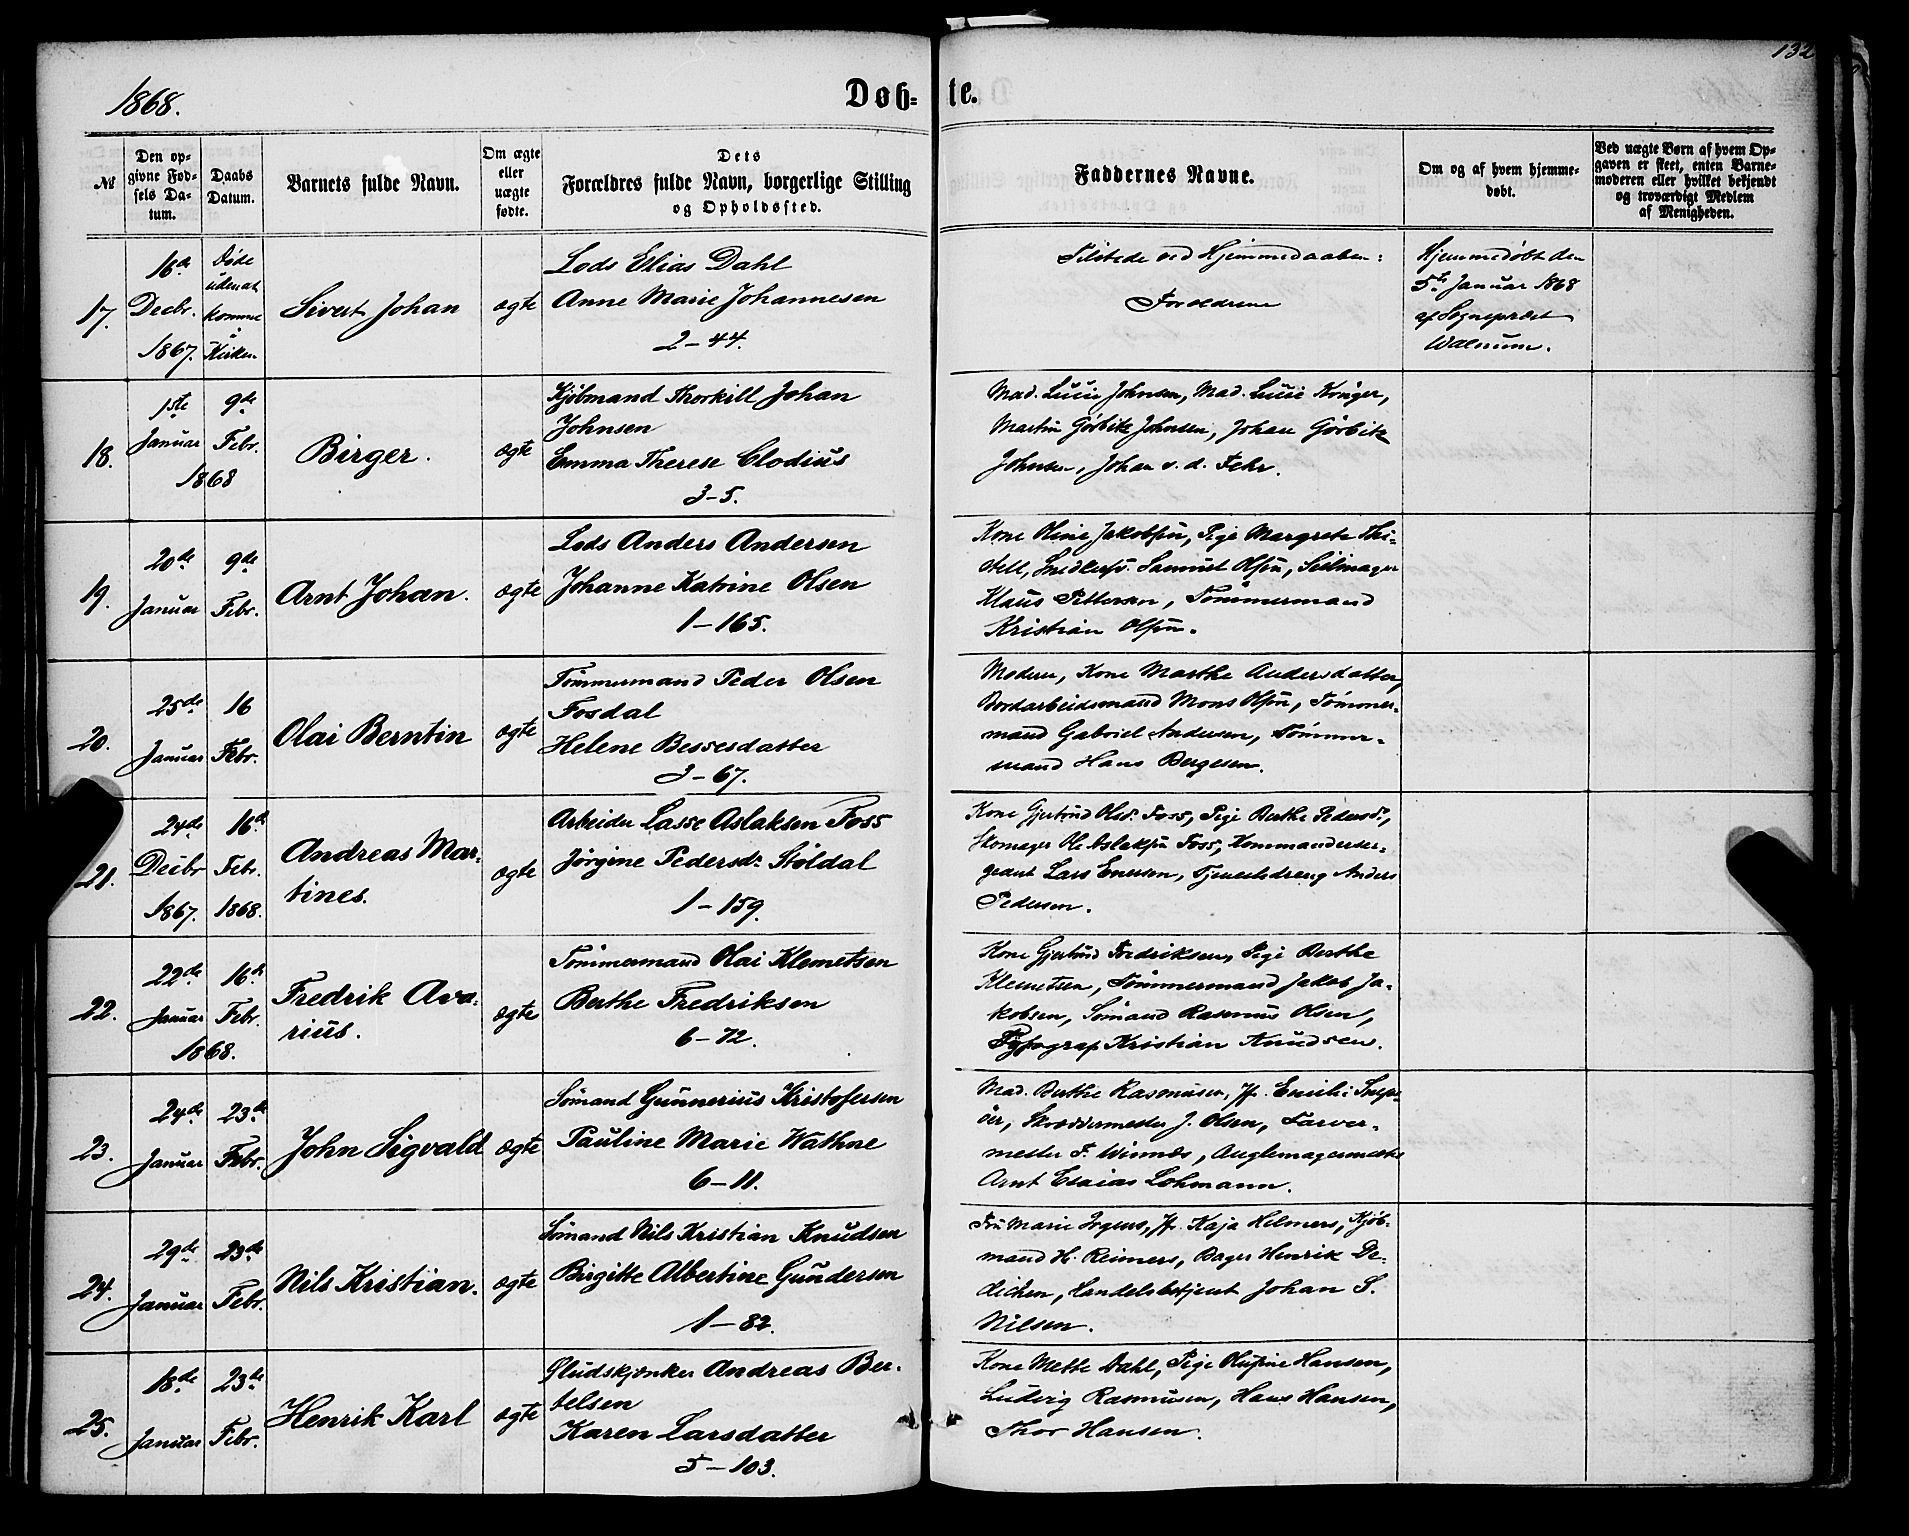 132
1868.
Døb- te.
№
Den op-
givne Fød-
sels Da-
tum.
Daabs
Datum.
Barnets fulde Navn.
Om ægte
eller
uægte
fødte.
Dets
Forældres fulde Navn, borgerlige Stilling
og Opholdssted.
Faddernes Navne.
Om og af hvem hjemme-
døbt.
Ved uægte Børn af hvem Op-
gaven er skeet, enten Barne-
moderen eller hvilket bekjendt
og troværdigt Medlem
af Menigheden.
17.
16de
Decbr.
1867.
Døde
uden at
komme
i
Kirken
Sivert Johan
ægte
Lods Elias Dahl
Anne Marie Johannesen
2-44.
Tilstede ved Hjemmedaaben:
Forældrene
Hjemmedøbt den
5te Januar 1868
af Sognepræst
Walnum.
18.
1ste
Januar
9de
Febr.
1868
Birger.
ægte
Kjøbmand Thorkill Johan
Johnsen
Emma Therese Clodius
3-5.
Mad. Lucie Johnsen, Mad. Lucie Krüger,
Martin Görbitz Johnsen, Johan Görbitz
Johnsen, Johan v. d. Fehr.
19.
20de
Januar
9de
Febr.
Arnt Johan.
ægte
Lods Anders Andersen
Johanne Katrine Olsen
1-165.
Kone Oline Jakobsen, Pige Margrete Thi-
stell, Snedkersv. Samuel Olsen, Seilmager
Klaus Pettersen, Tømmermand
Kristian Olsen.
20.
25de
Januar
16
Febr.
Olai Berntin
ægte
Tømmermand Peder Olsen
Fosdal
Helene Bessesdatter
3-67.
Moderen, Kone Marthe Andersdatter,
Bordarbeidsmand Mons Olsen, Tømmer-
mand Gabriel Andersen, Tømmer-
mand Hans Bergesen.
21.
24de
Decbr
1867.
16de
Febr.
1868.
Andreas Mar-
tines.
ægte
Arbeider Lasse Aslaksen Foss
Jørgine Pedersdr. Støldal
1-159.
Kone Gjertrud Olsdr. Foss, Pige Berthe Pedersdr.,
Skomager Ole Aslaksen Foss, Kommanderser-
geant Lars Enersen, Tjenestedreng Anders
Pedersen.
22.
22de
Januar
16de
Febr.
1868.
Fredrik Ava-
rius.
ægte
Tømmermand Olai Klemetsen
Berthe Fredriksen
6-72.
Kone Gjertrud Fredriksen, Pige Berthe
Klemetsen, Tømmermand Jakob Ja-
kobsen, Sømand Rasmus Olsen,
Typograf Kristian Knudsen.
23.
24de
Januar
23de
Febr.
John Sigvald
ægte
Sømand Gunnerius Kristofersen
Pauline Marie Wathne
6-11.
Mad. Berthe Rasmusen, Jfr. Emilie
Skræddermester J. Olsen, Farver-
mester F. Winnæs, Anglemagermester
Arnt Esaias Lohmann.
24.
29de
Januar
23de
Febr.
Nils Kristian.
ægte
Sømand Nils Kristian Knudsen
Birgitte Albertine Gundersen
1-82.
Fru Marie Irgens, Jfr. Kaja Helmers, Kjøb-
mand H. Reimers, Bager Henrik De-
dichen, Handelsbetjent Johan S.
Nilsen.
25.
18de
Januar
23de
Febr.
Henrik Karl
ægte
Øludskjænker Andreas Ber-
telsen
Karen Larsdatter
5-103.
Kone Mette Dahl, Pige Olufine Hansen,
Ludvig Rasmusen, Hans Hansen,
Thor Hansen.